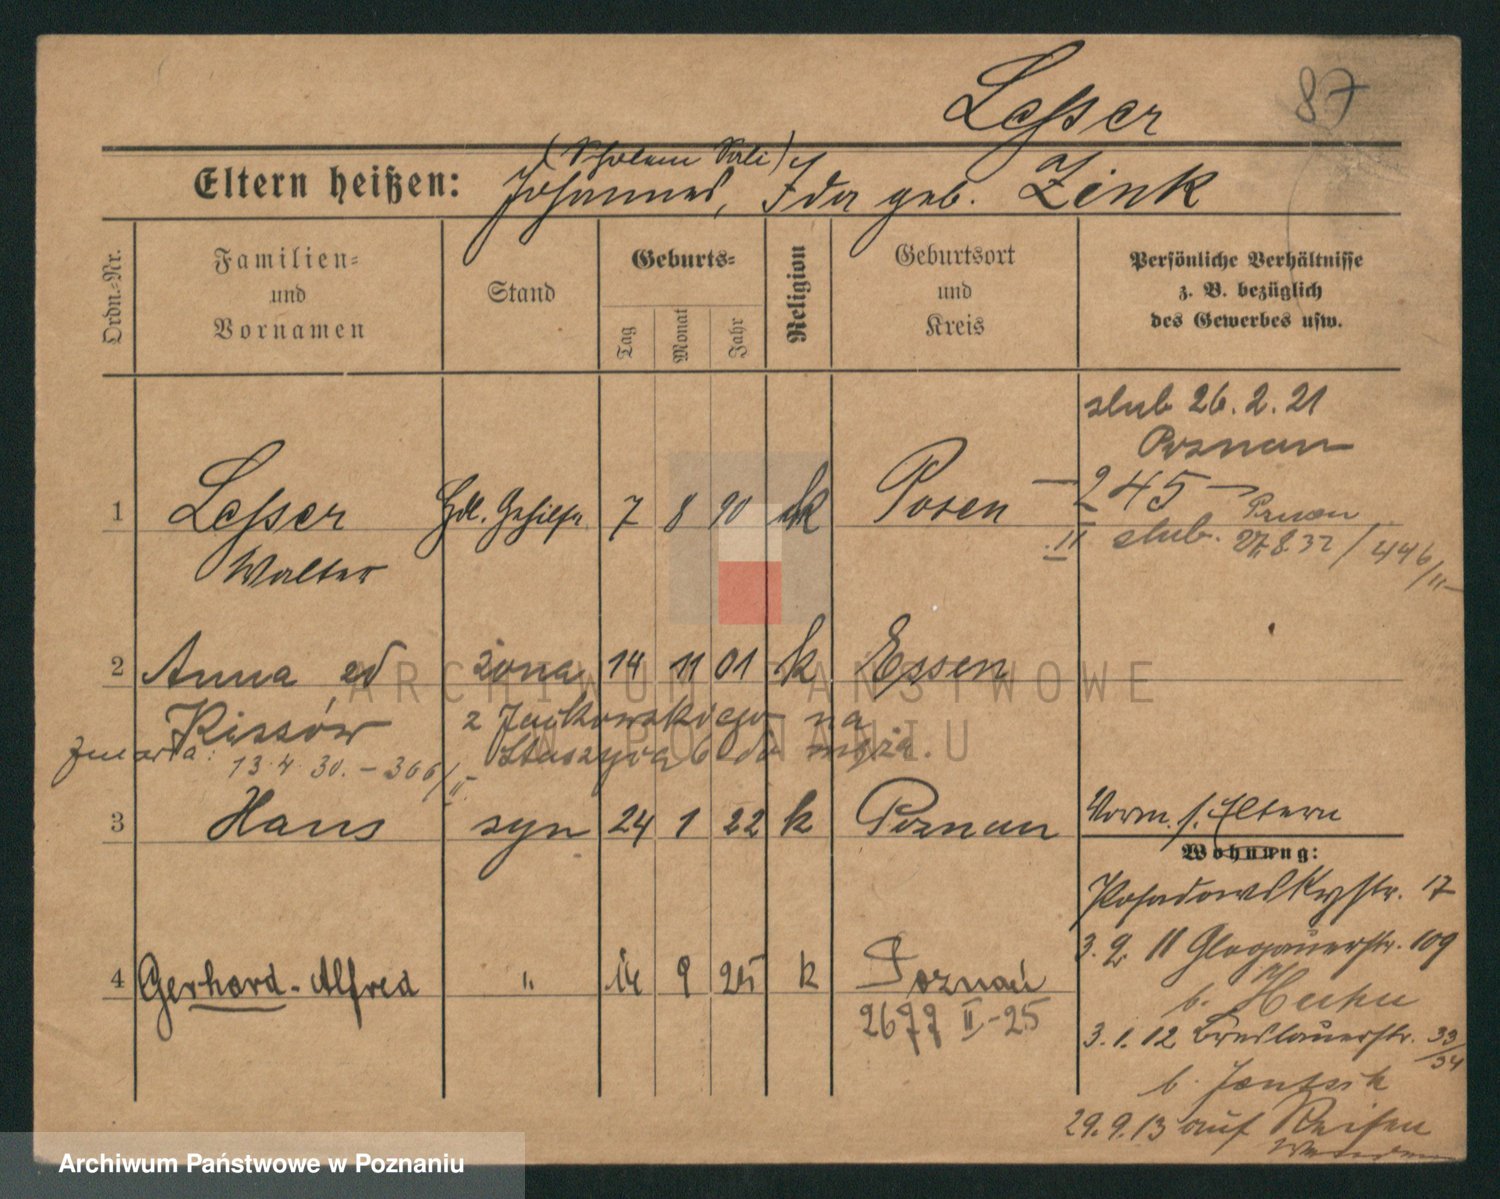 Lesser
87
Eltern heißen: Johannes, Ida geb. Zink
Ordn.-Nr.
Familien-
und
Vornamen
Stand
Geburts-
Tag
Monat
Jahr
Religion
Geburtsort
und
Kreis
Persönliche Verhältnisse
z. B. bezüglich
des Gewerbes usw.
ślub 26.2.21
Poznań
245
1 Lesser Hdl. Gehilfe 7 8 90 k Posen
II ślub. 27.8.32 / 446/II
Walter
2 Anna zd żona 14 11 01 k Essen
Kissów z Jackowskiego na
Staszyca 6 do męża.
Zmarła: 13.4.30. - 366/II
3 Hans syn 24 1 22 k Poznań
Vorm. s. Eltern
Wohnung:
Posadowskystr. 17
3.9.11 Glogauerstr. 109
4 Gerhard-Alfred " 14 9 25 k Poznań
2677 II-25
b.
3.1.12 Breslauerstr. 33/34
b.
29.9.13 auf Reisen
ARCHIWUM PAŃSTWOWE
W POZNANIU
Archiwum Państwowe w Poznaniu